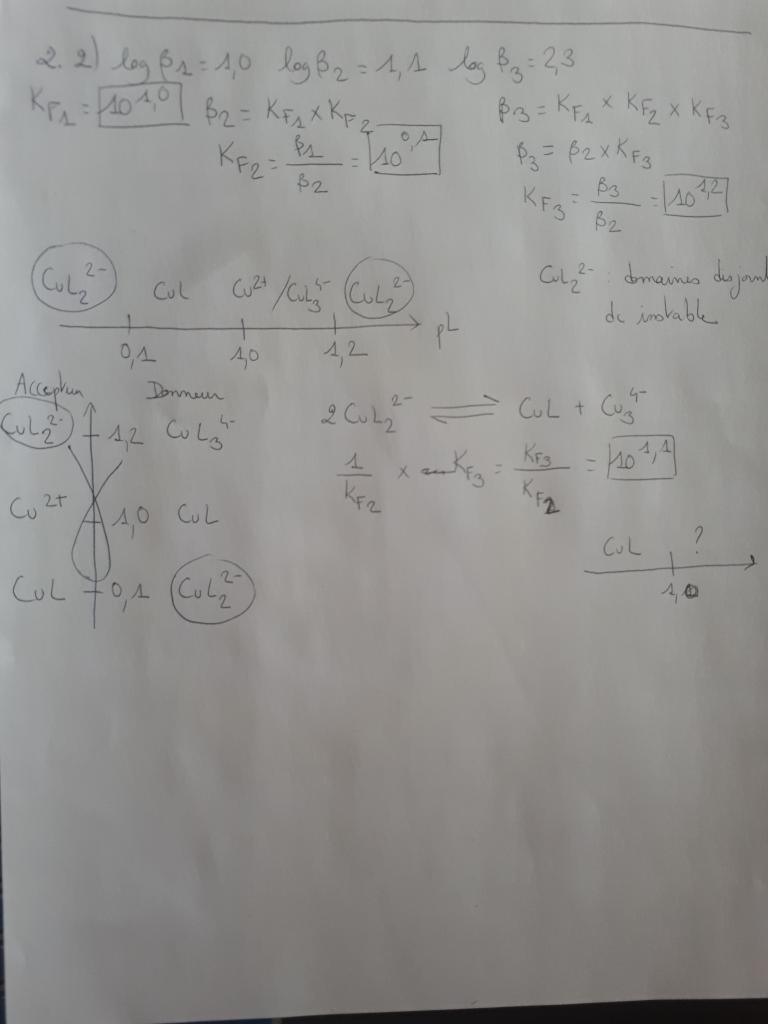 2. 2) log β1 = 1,0 log β2 = 1,1 log β3 = 2,3
KF1 = 10^1,0 β2 = KF1 x KF2 β3 = KF1 x KF2 x KF3
KF2 = β1/β2 = 10^0,1 β3 = β2 x KF3
KF3 = β3/β2 = 10^1,2
CuL2^2- CuL Cu^2+ / CuL3^4- CuL2^2- pL
0,1 1,0 1,2
CuL2^2- : domaines disjoints
dc instable
Accepteur Donneur
CuL2^2- 1,2 CuL3^4-
Cu^2+ 1,0 CuL
CuL 0,1 CuL2^2-
2 CuL2^2- ⇌ CuL + Cu3^4-
1/KF2 x KF3 = KF3/KF2 = 10^1,1
CuL ?
1,0